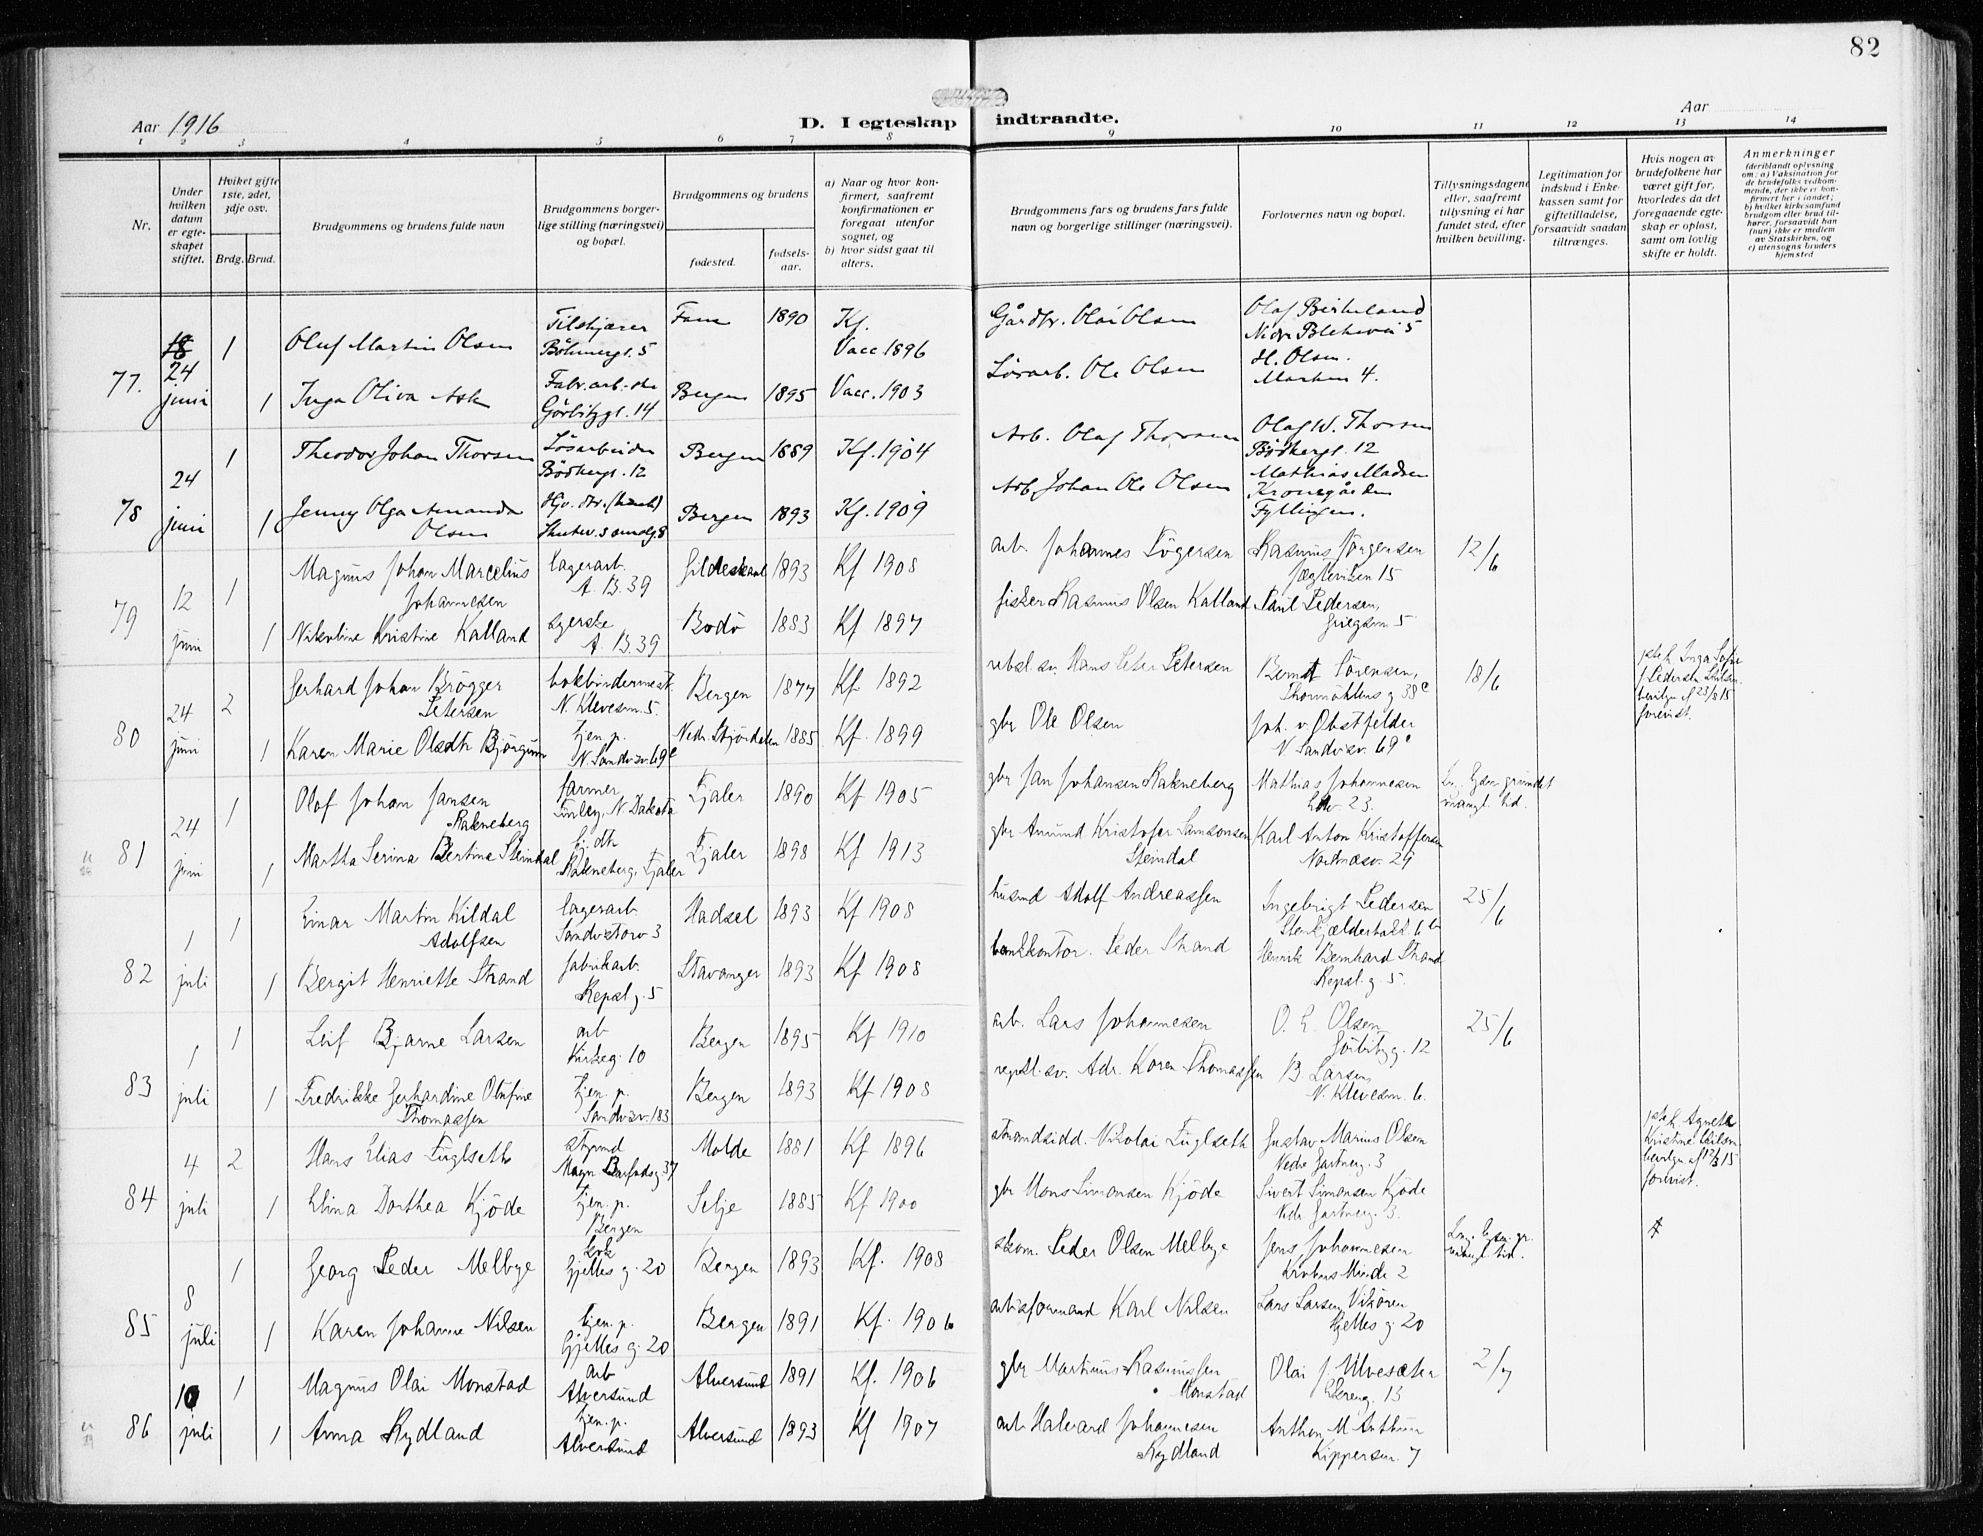 82
Aar 1916
D. I egteskap indtraadte.
Aar
1 2 3 4 5 6 7 8 9 10 11 12 13 14
Nr.
Under hvilken datum er egteskapet stiftet.
Hviket gifte 1ste, 2det, 3dje osv.
Brdg. Brud.
Brudgommens og brudens fulde navn
Brudgommens borgerlige stilling (næringsvei) og bopæl.
Brudgommens og brudens
fødested.
fødselsaar.
a) Naar og hvor konfirmert, saafremt konfirmationen er foregaat utenfor sognet, og
b) hvor sidst gaat til alters.
Brudgommens fars og brudens fars fulde navn og borgerlige stillinger (næringsvei).
Forlovernes navn og bopæl.
Tillysningsdagene eller, saafremt tillysning ei har fundet sted, efter hvilken bevilling.
Legitimation for indskud i Enkekassen samt for giftetilladelse, forsaavidt saadan tiltrænges.
Hvis nogen av brudefolkene har været gift før, hvorledes da det foregaaende egteskap er opløst, samt om lovlig skifte er holdt.
Anmerkninger
(deriblandt oplysning om: a) Vaksination for de brudefolks vedkommende, der ikke er konfirmert her i landet; b) hvilket kirkesamfund brudgom eller brud tilhører, forsaavidt han (hun) ikke er medlem av Statskirken, og c) utensogns bruders hjemsted
77. 18 24 juni 1 Oluf Martin Olsen Tilskjærer Böhmergt. 5 Fane 1890 Kf. Vacc. 1896 Gårdbr. Olai Olsen Olaf Birkeland Nidre Blekevei 5
1 Inga Oliva Ask Fabr. arb. Görbitzgt. 14 Bergen 1895 Vacc. 1903 Lösarb. Ole Olsen H. Olsen. Marken 4.
78 24 juni 1 Theodor Johan Thorsen Lösarbeider Bödkergt. 12 Bergen 1889 Kf. 1904 Arb. Olaf Thorsen Olaf W. Thorsen Bödkergt. 12
1 Jenny Olga Amanda Olsen Bergen 1893 Kf. 1909 Arb. Johan Ole Olsen Mathias Madsen Kronegården Fyllingen.
79 12 juni 1 Magnus Johan Marcelius Johannesen lagerarb. A. B. 39 Gildeskaal 1893 Kf 1908 arb. Johannes Tögersen Rasmus Jörgensen Jægteviken 15 12/6
1 Nikoline Kristine Kalland syerske A. B. 39 Bodö 1883 Kf 1897 fisker Rasmus Olsen Kalland Paul Pedersen, Griegsm. 5
80 24 juni 2 Gerhard Johan Brögger Petersen bokbindermest. N. Klevesm. 5. Bergen 1877 Kf 1892 rebsl. sv. Hans Peter Petersen Bernt Sörensen, Thormöhlens g 38c 18/6
1 Karen Marie Olsdtr Bjørgum tjen. p. N. Sandvsv. 69c Nedr. Stjördalen 1885 Kf. 1899 gbr Ole Olsen Joh. v. Obstfelder N Sandvsv. 69c
81 24 juni 1 Olaf Johan Jansen Rakneberg farmer Finley, N. Dakota Fjaler 1890 Kf 1905 gbr Jan Johansen Rakneberg Mathias Johannesen 23.
1 Martha Serina Bertina Steindal Rakneberg, Fjaler Fjaler 1898 Kf 1913 gbr Amund Kristofer Samsonsen Steindal Karl Anton Kristoffersen Nordnæsv. 29
82 1 juli 1 Einar Martin Kildal Adolfsen lagerarb. Sandvstorv 3 Hadsel 1893 Kf 1908 husmd Adolf Andreassen Ingebrigt Pedersen 25/6
1 Bergit Henriette Strand fabrikarb. Repsl g. 5 Stavanger 1893 Kf 1908 bankkontor. Peder Strand Henrik Bernhard Strand Repsl. g 5.
83 1 juli 1 Leif Bjarne Larsen arb Kirkeg. 10 Bergen 1895 Kf 1910 arb. Lars Johannesen O. E. Olsen Görbitzg. 12 25/6
1 Fredrikke Gerhardine Olufine Thomassen tjen. p. Sandvsv. 183 Bergen 1893 Kf 1908 repsl. sv. Adr. Koren Thomassen B. Larsen, N. Klevesm. 6.
84 4 juli 2 Hans Elias Fuglseth styrmd Magn Barfodsg 37 Molde 1881 Kf 1896 strandsidd. Nikolai Fuglseth Gustav Marius Olsen Nedre Gartnerg. 3
1 Elina Dorthea Kjöde tjen. p. Bergen Selje 1885 Kf 1900 gbr Mons Simonsen Kjöde Sivert Simonsen Kjöde Nedr. Gartnerg. 3.
85 8 juli 1 Georg Peder Melbye Gjelles g. 20 Bergen 1893 Kf. 1908 skom. Peder Olsen Melbye Jens Johannesen Krohns Minde 2
1 Karen Johanne Nilsen tjen. p. Gjelles g. 20 Bergen 1891 Kf. 1906 arbisformand Karl Nilsen Lars Larsen Vikören Gjelles g. 20
86 10 juli 1 Magnus Olai Monstad arb Alversund Alversund 1891 Kf. 1906 gbr Martinus Rasmussen Monstad Olai J. Ulvesæter Ekreng. 13 2/7
1 Anna Rydland tjen. p. Alversund Alversund 1893 Kf 1907 arb Halvard Johannesen Rydland Anthon M Anthun Kippersm. 7